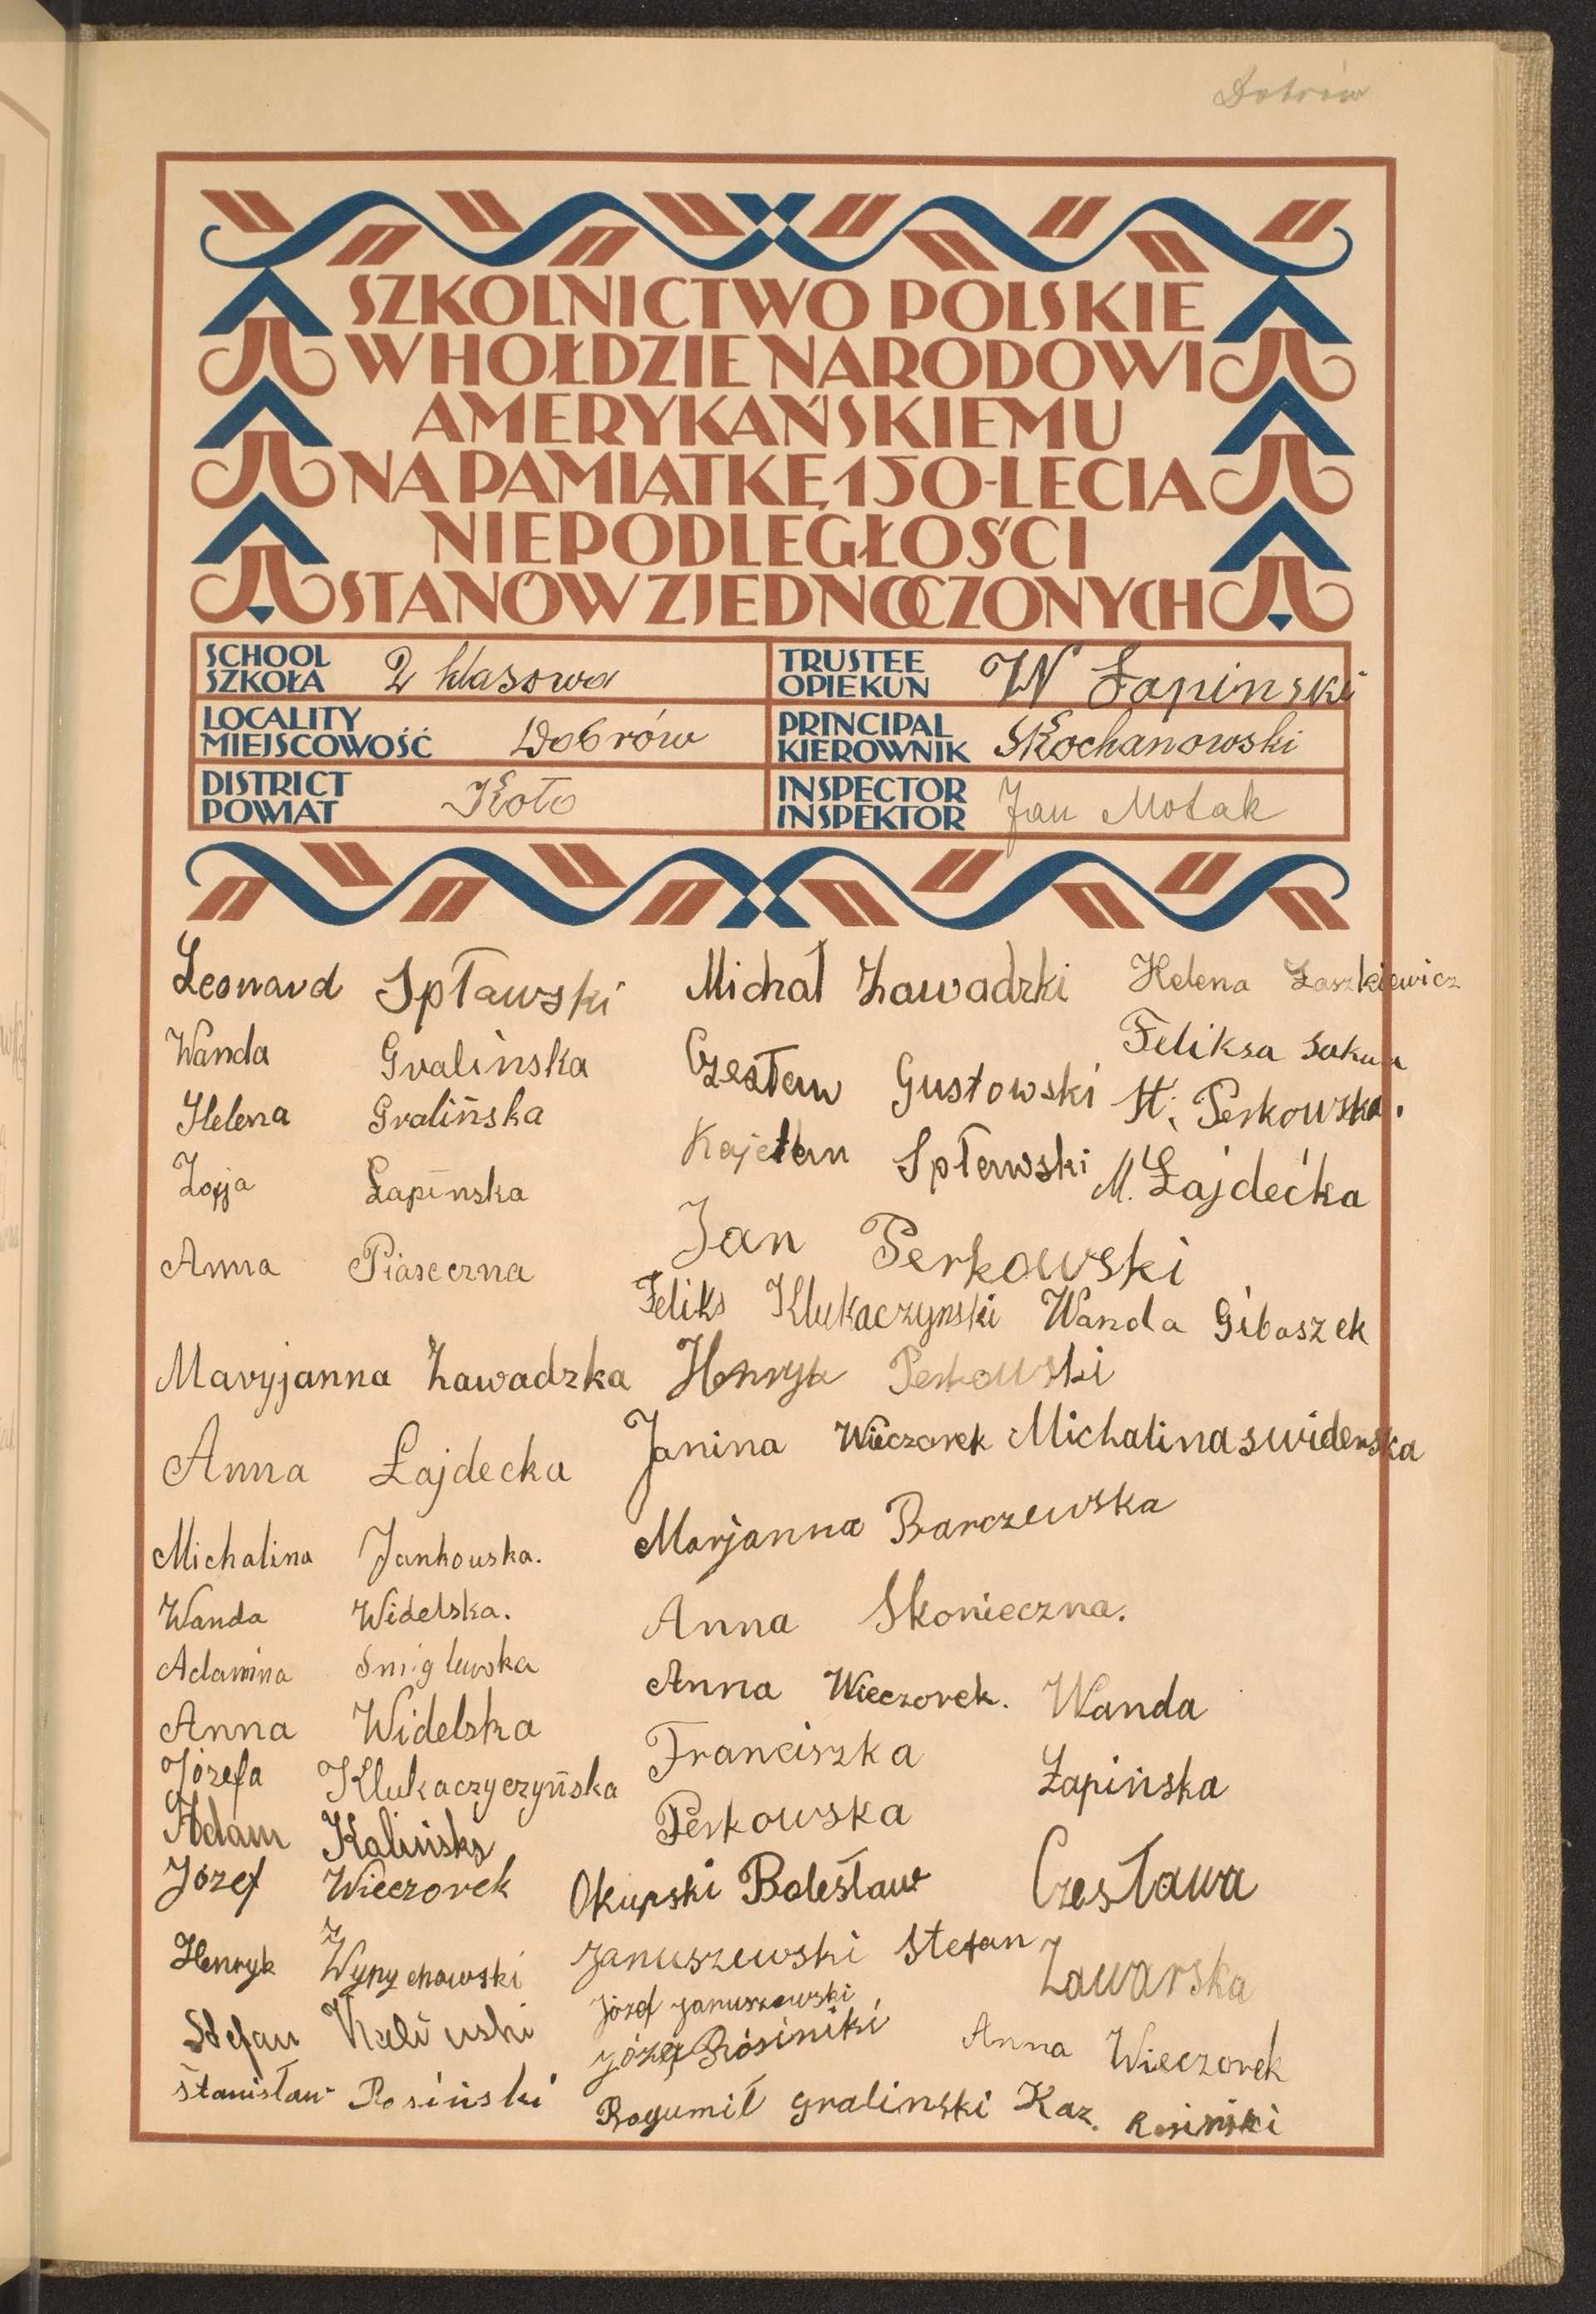 Dobrów
SZKOLNICTWO POLSKIE
W HOŁDZIE NARODOWI
AMERYKAŃSKIEMU
NA PAMIĄTKĘ 150-LECIA
NIEPODLEGŁOŚCI
STANÓW ZJEDNOCZONYCH
SCHOOL
SZKOŁA 2 klasowa
TRUSTEE
OPIEKUN W Łapinski
LOCALITY
MIEJSCOWOŚĆ Dobrów
PRINCIPAL
KIEROWNIK SKochanowski
DISTRICT
POWIAT Koło
INSPECTOR
INSPEKTOR Jan Motak
Leonard Spławski
Wanda Gralińska
Helena Gralińska
Zofja Łapińska
Anna Piaseczna
Maryjanna Zawadzka
Anna Łajdecka
Michalina Jankowska.
Wanda Widelska.
Adamina Smiglewska
Anna Widelska
Józefa Klukaczyczyńska
Adam Kaliński
Józef Wieczorek
Henryk Wypychowski
Stefan Kaliński
Stanisław Rosiński
Michał Zawadzki
Czesław Gustowski
Kajetan Spławski
Jan Perkowski
Feliks Klukaczynski
Henryk Perkowski
Janina Wieczorek
Marjanna Barczewska
Anna Skonieczna.
Anna Wieczorek.
Franciszka
Perkowska
Okupski Bolesław
Januszewski Stefan
Józef Januszewski
Józef Rósiniki
Bogumił Gralinski
Helena Łaszkiewicz
Feliksa
St. Perkowska.
M. Łajdećka
Wanda Gibaszek
Michalina swiderska
Wanda
Łapińska
Czesława
Zawarska
Anna Wieczorek
Kaz. Rosiński